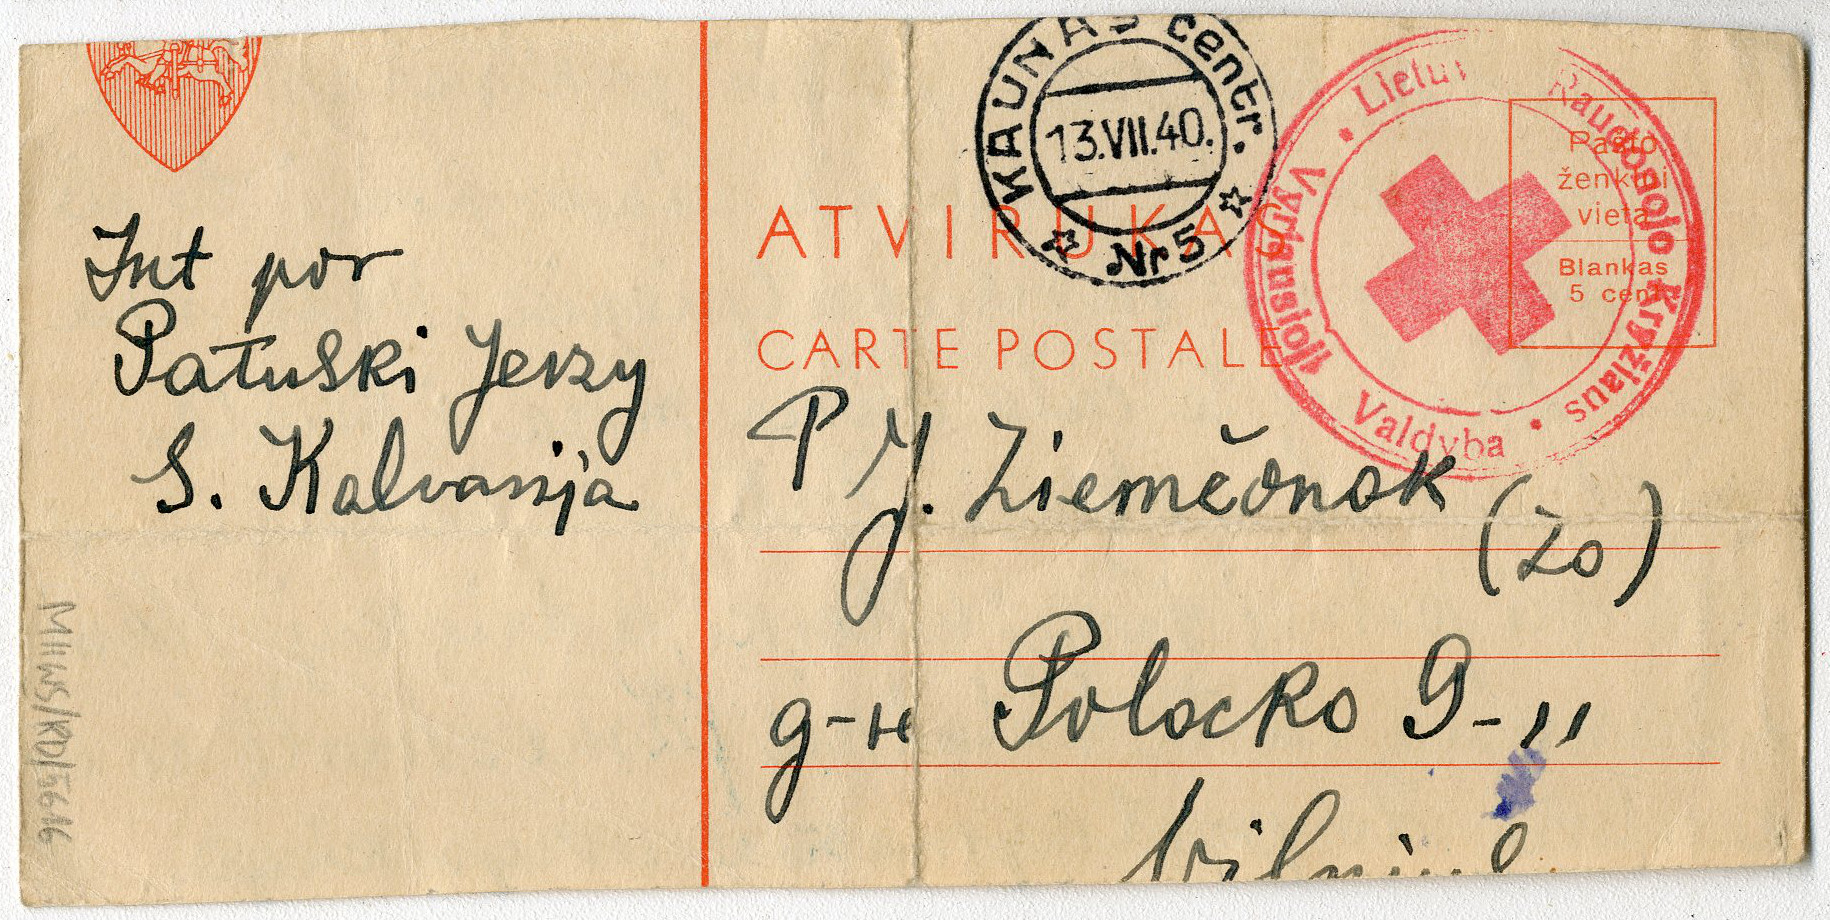 Int por
Patuski Jerzy
S. Kalvarija
MIIWS/KD/5616
KAUNAS centr.
13.VII.40.
Nr 5
Lietuv Raudonojo Kryžiaus
Vyriausioji Valdyba
Pašto
ženklui
vieta
Blankas
5 cent
ATVIRUKAS
CARTE POSTALE
P J. Ziemčonok
(Žo)
g-vė Polocko 9-11
Vilniuje